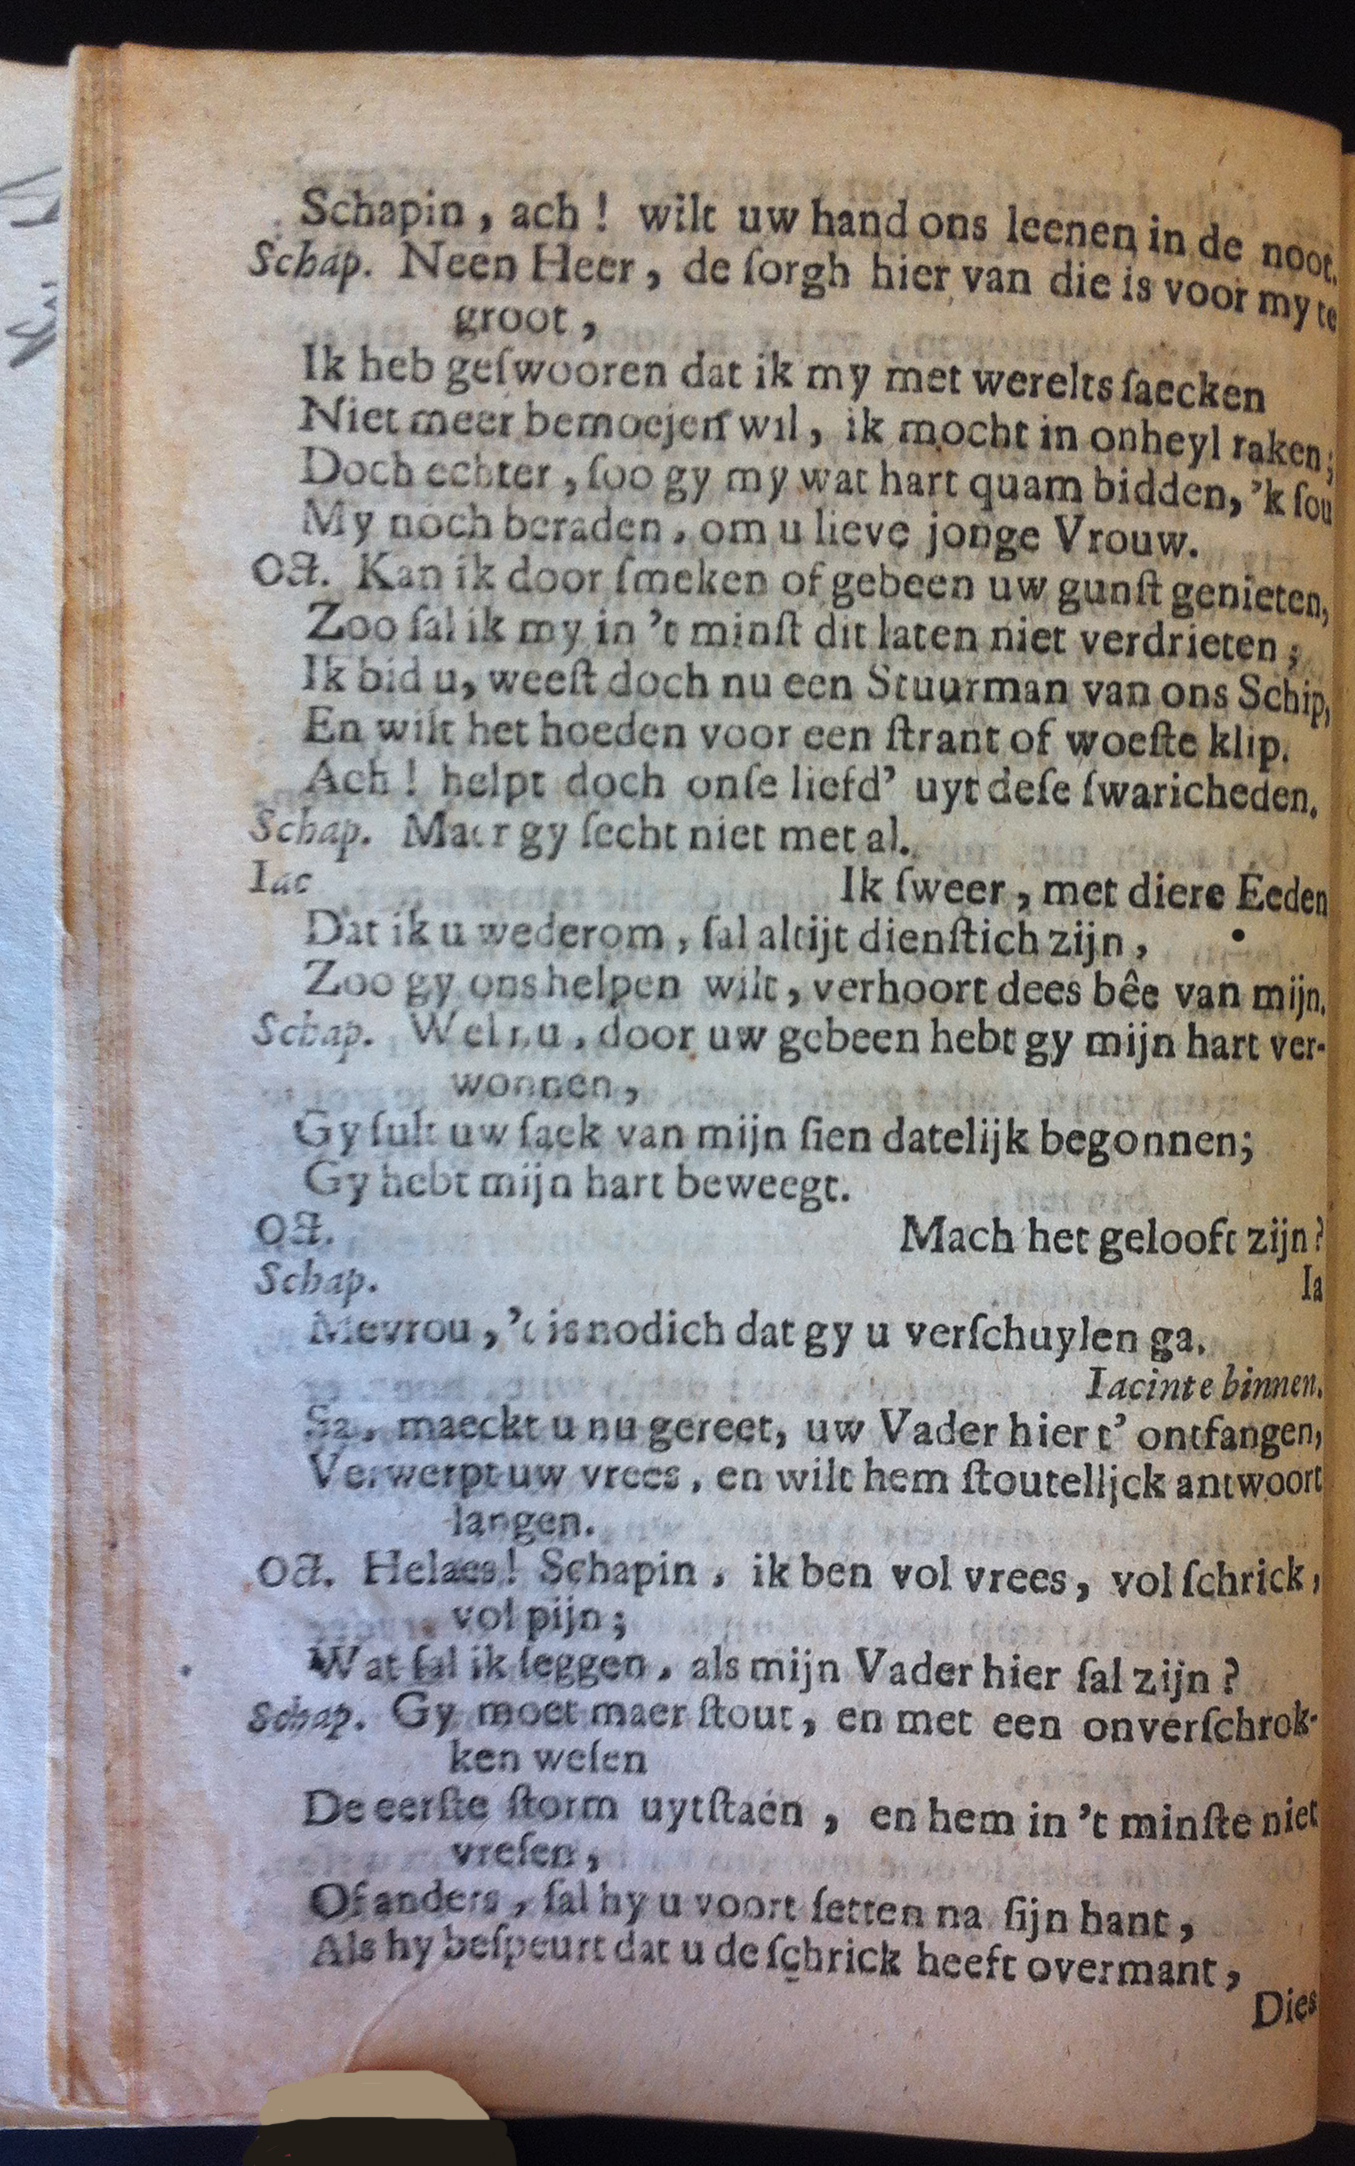 Schapin, ach! wilt uw hand ons leenen in de noot.
Schap. Neen Heer, de ſorgh hier van die is voor my te
groot,
Ik heb geſwooren dat ik my met werelts ſaecken
Niet meer bemoejen wil, ik mocht in onheyl raken;
Doch echter, ſoo gy my wat hart quam bidden, 'k ſou
My noch beraden, om u lieve jonge Vrouw.
Oct. Kan ik door ſmeken of gebeen uw gunſt genieten,
Zoo ſal ik my in 't minſt dit laten niet verdrieten;
Ik bid u, weeſt doch nu een Stuurman van ons Schip,
En wilt het hoeden voor een ſtrant of woeſte klip.
Ach! helpt doch onſe liefd' uyt deſe ſwaricheden.
Schap. Maer gy ſecht niet met al.
Iac Ik ſweer, met diere Eeden
Dat ik u wederom, ſal altijt dienſtich zijn,
Zoo gy ons helpen wilt, verhoort dees bêe van mijn.
Schap. Wel nu, door uw gebeen hebt gy mijn hart ver-
wonnen,
Gy ſult uw ſaek van mijn ſien datelijk begonnen;
Gy hebt mijn hart beweegt.
Oct. Mach het gelooft zijn?
Schap. Ia
Mevrou, 't is nodich dat gy u verſchuylen ga.
Iacinte binnen.
Sa, maeckt u nu gereet, uw Vader hier t' ontfangen,
Verwerpt uw vrees, en wilt hem ſtoutelijck antwoort
langen.
Oct. Helaes! Schapin, ik ben vol vrees, vol ſchrick,
vol pijn;
Wat ſal ik ſeggen, als mijn Vader hier ſal zijn?
Schap. Gy moet maer ſtout, en met een onverſchrok-
ken weſen
De eerſte ſtorm uytſtaen, en hem in 't minſte niet
vreſen,
Of anders, ſal hy u voort ſetten na ſijn hant,
Als hy beſpeurt dat u de ſchrick heeft overmant,
Dies